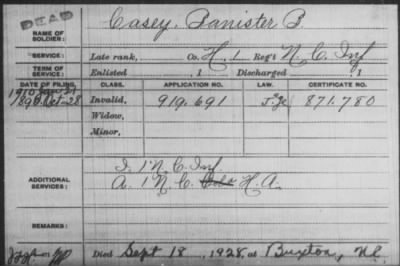 DEAD
NAME OF SOLDIER: Casey, Banister B.
SERVICE: Late rank, Co. H, 1 Reg't N. C. Inf
TERM OF SERVICE: Enlisted , 1 Discharged , 1
DATE OF FILING. CLASS. APPLICATION NO. LAW. CERTIFICATE NO.
1890 Oct-28 Invalid, 919.691 871.780
Widow,
Minor,
ADDITIONAL SERVICES: I. 1" N. C. Inf.
A. 1" N. C. H. A.
REMARKS:
Died Sept 18, 1928, at Buxton, N.C.